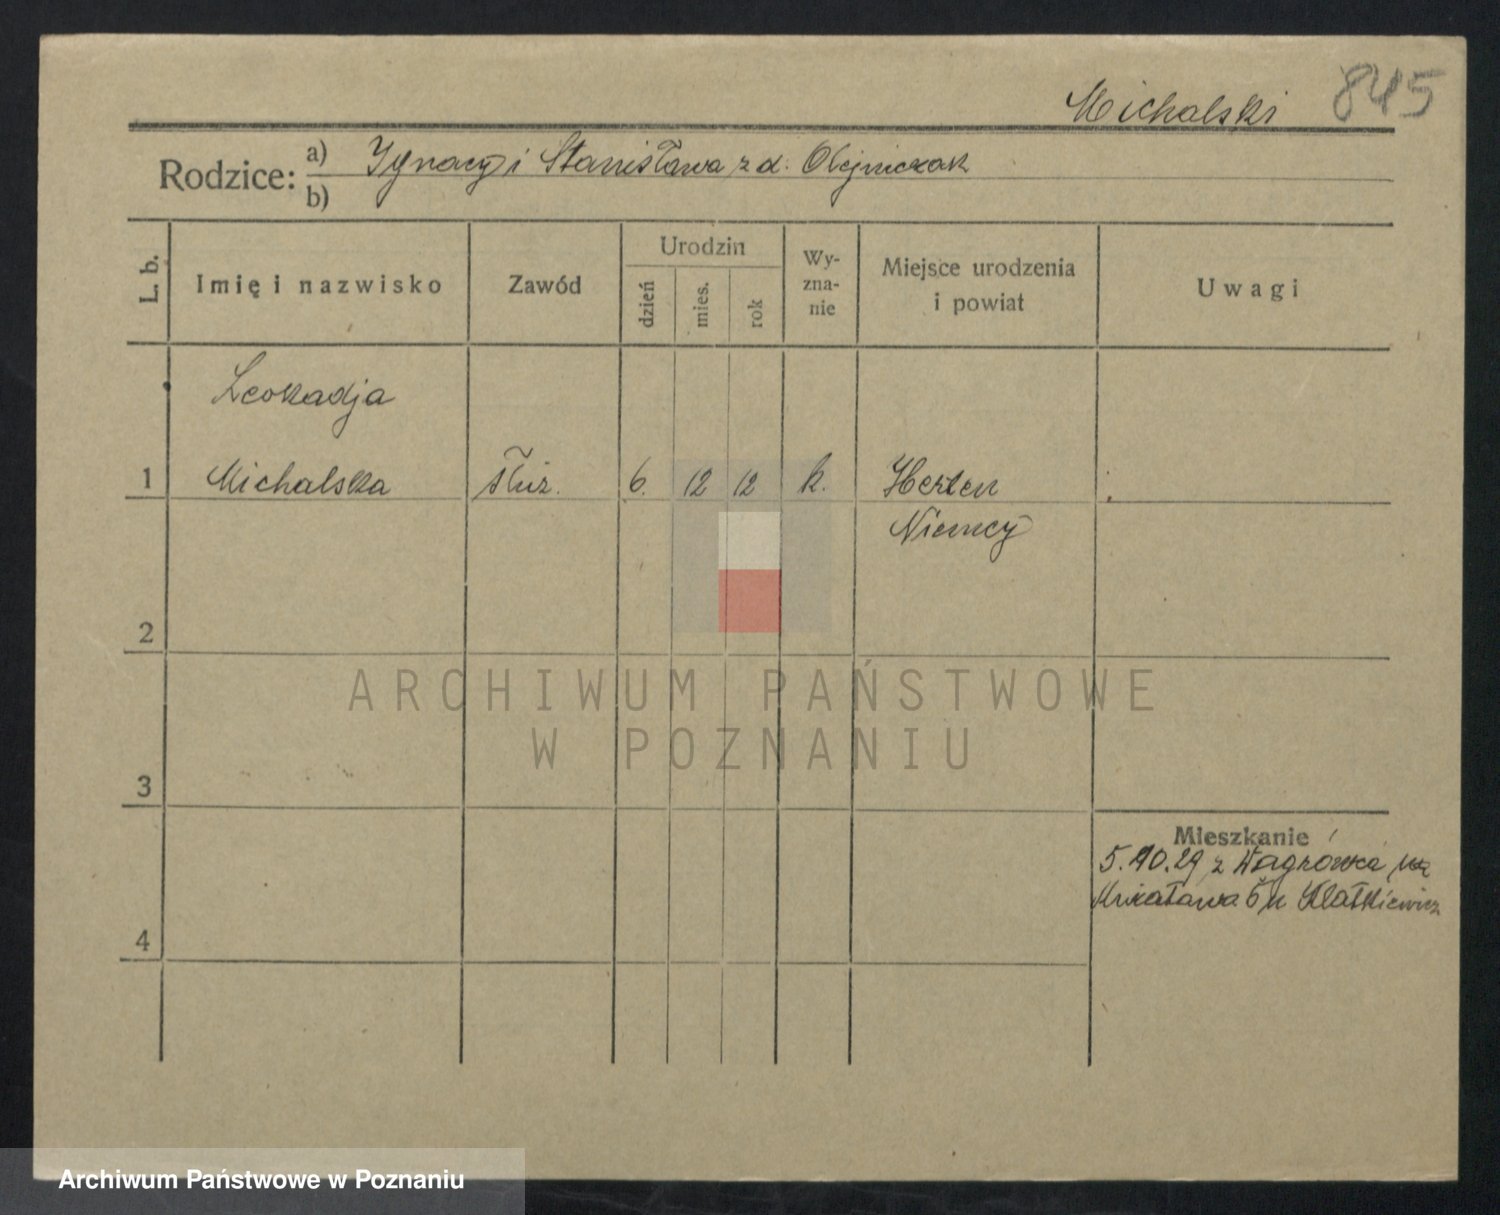 Michalski 845
Rodzice: a) Ignacy i Stanisława z d. Olejniczak
b)
L. b.
Imię i nazwisko
Zawód
Urodzin
dzień
mies.
rok
Wy-
zna-
nie
Miejsce urodzenia
i powiat
Uwagi
Leokadja
1 Michalska służ. 6. 12 12 k. Herten
Niemcy
2
ARCHIWUM PAŃSTWOWE
W POZNANIU
3
Mieszkanie
5.10.29 z Wągrówca na
5 u Klatkiewicz
4
Archiwum Państwowe w Poznaniu